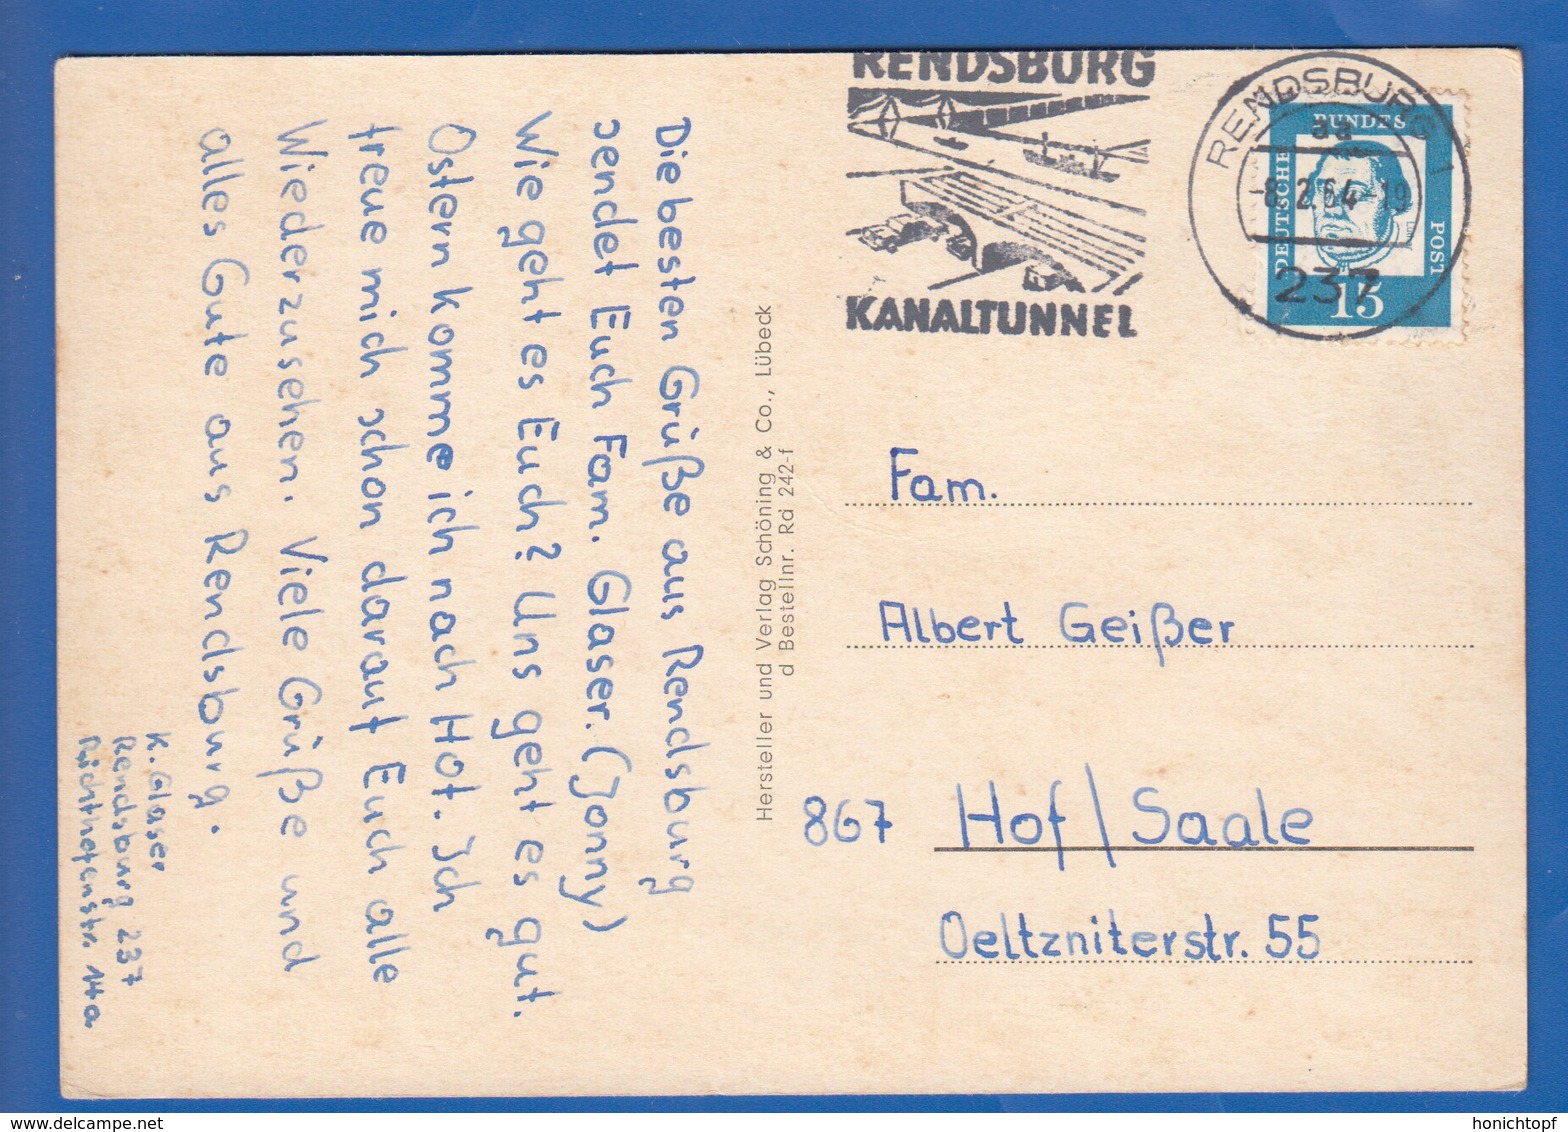 Die besten Grüße aus Rendsburg
sendet Euch Fam. Glaser. (Jonny)
Wie geht es Euch? Uns geht es gut.
Ostern komme ich nach Hof. Ich
freue mich schon darauf Euch alle
Wiederzusehen. Viele Grüße und
alles Gute aus Rendsburg.
K. Glaser
Rendsburg 237
Richthofenstr. 14a
Hersteller und Verlag Schöning & Co., Lübeck
d Bestellnr. Rd 242-f
RENDSBURG
KANALTUNNEL
RENDSBURG 1
aa
-8.2.64-19
237
DEUTSCHE
BUNDES
POST
15
Fam.
Albert Geißer
867 Hof/Saale
Oeltzniterstr. 55
www.delcampe.net
honichtopf